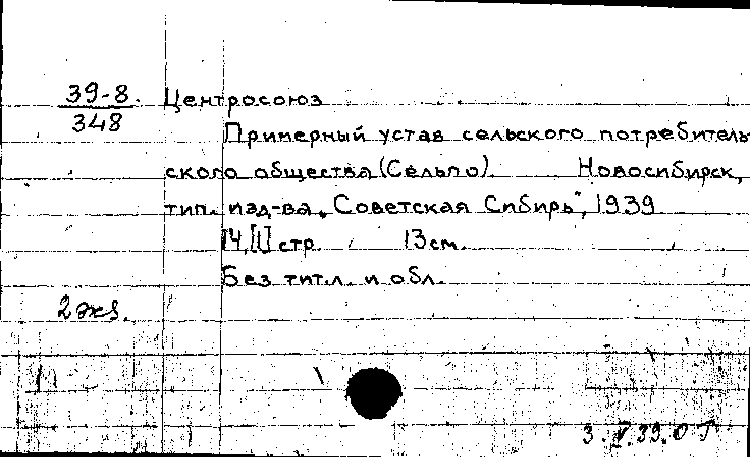 39-8
348
Центросоюз
Примерный устав сельского потребитель
ского общества (Сельпо). Новосибирск,
тип. изд-ва „Советская Сибирь", 1939
14,[1] стр. 13 см.
Без тит.л. и обл.
2 экз.
3.V.39.